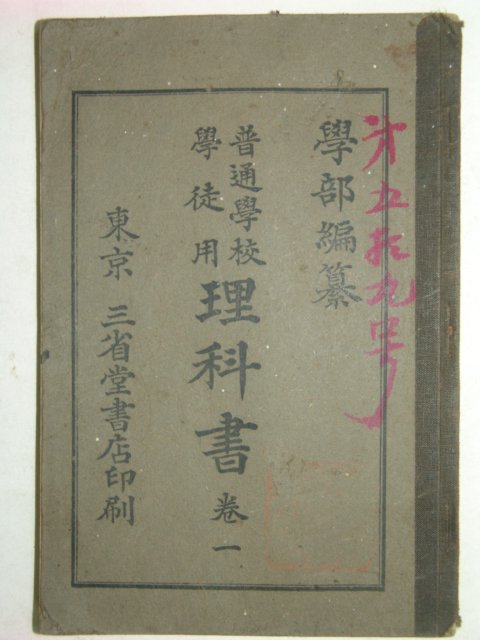 学部編纂
普通學校
學徒用
理科書 卷一
東京 三省堂書店印刷